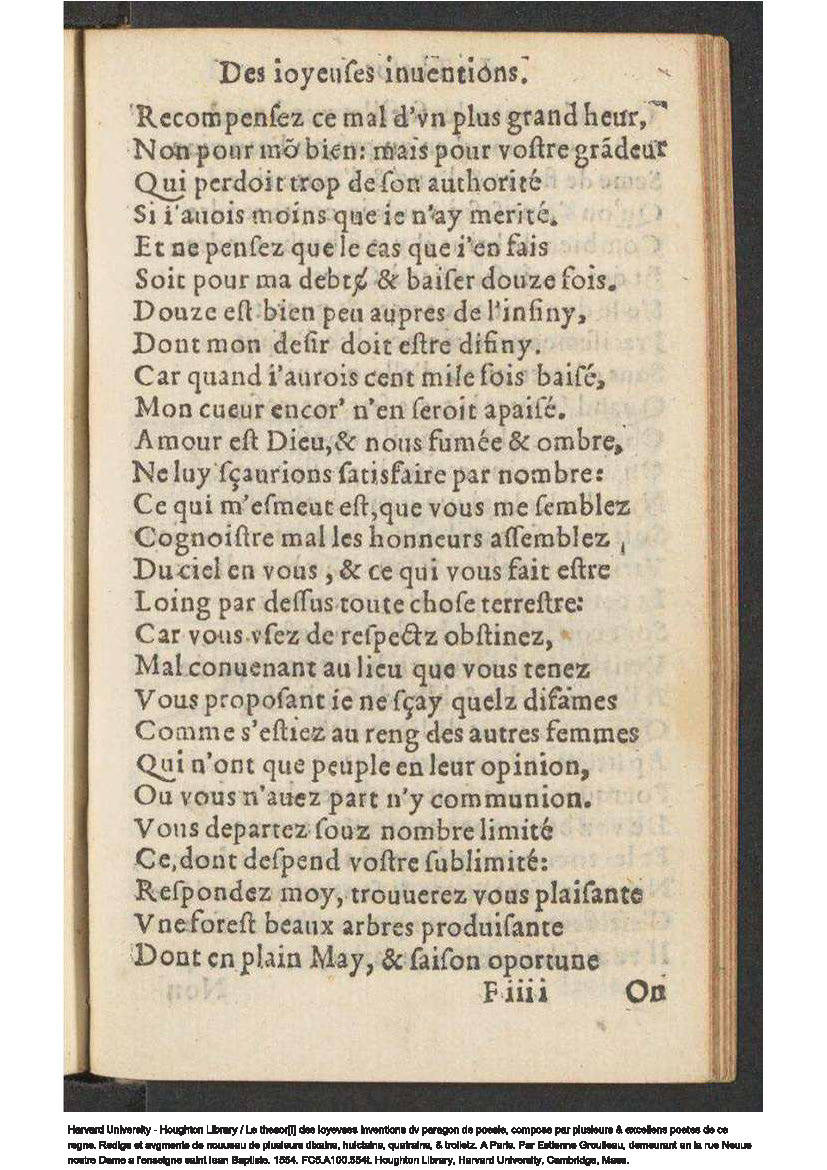 Des ioyeuſes inuentions.
Recompenſez ce mal d'vn plus grand heur,
Non pour mõ bien: mais pour voſtre grãdeur
Qui perdoit trop de ſon authorité
Si i'auois moins que ie n'ay merité.
Et ne penſez que le cas que i'en fais
Soit pour ma debte, & baiſer douze fois.
Douze eſt bien peu aupres de l'infiny,
Dont mon deſir doit eſtre difiny.
Car quand i'aurois cent mile fois baiſé,
Mon cueur encor' n'en ſeroit apaiſé.
Amour eſt Dieu, & nous fumée & ombre,
Ne luy ſçaurions ſatisfaire par nombre:
Ce qui m'eſmeut eſt, que vous me ſemblez
Cognoiſtre mal les honneurs aſſemblez,
Du ciel en vous, & ce qui vous fait eſtre
Loing par deſſus toute choſe terreſtre:
Car vous vſez de reſpectz obſtinez,
Mal conuenant au lieu que vous tenez
Vous propoſant ie ne ſçay quelz difames
Comme s'eſtiez au reng des autres femmes
Qui n'ont que peuple en leur opinion,
Ou vous n'auez part n'y communion.
Vous departez ſouz nombre limité
Ce, dont deſpend voſtre ſublimité:
Reſpondez moy, trouuerez vous plaiſante
Vne foreſt beaux arbres produiſante
Dont en plain May, & ſaiſon oportune
F iiii On
Harvard University - Houghton Library / Le thesor[i] des ioyevses inventions dv paragon de poesie, compose par plusieurs & excellens poetes de ce
regne. Redige et avgmente de nouueau de plusieurs dixains, huictains, quatrains, & trolletz. A Paris. Par Estienne Groulleau, demeurant en la rue Neuue
nostre Dame a l'enseigne saint Iean Baptiste. 1554. FC5.A100.554t. Houghton Library, Harvard University, Cambridge, Mass.